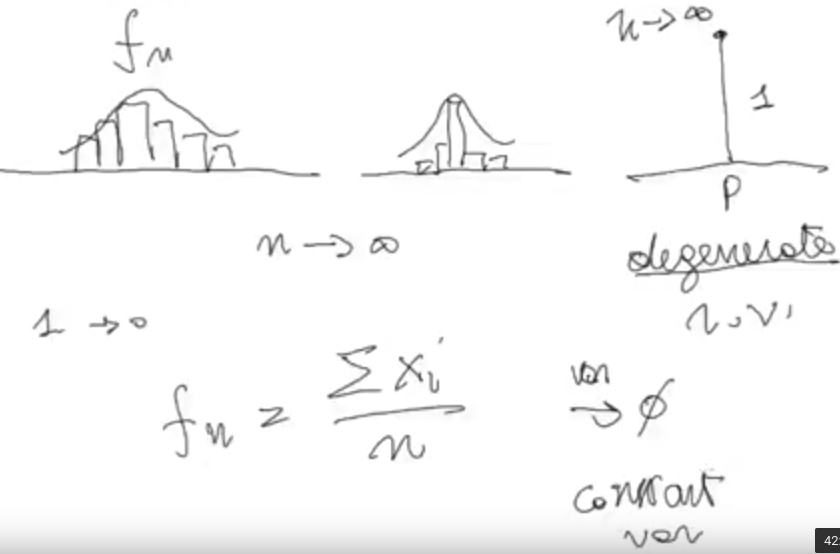 fₙ
n → ∞
1
p
n → ∞
degenerate
r.v.
1 → 0
fₙ = ∑ xᵢ / n
var → ϕ
constant
var
42